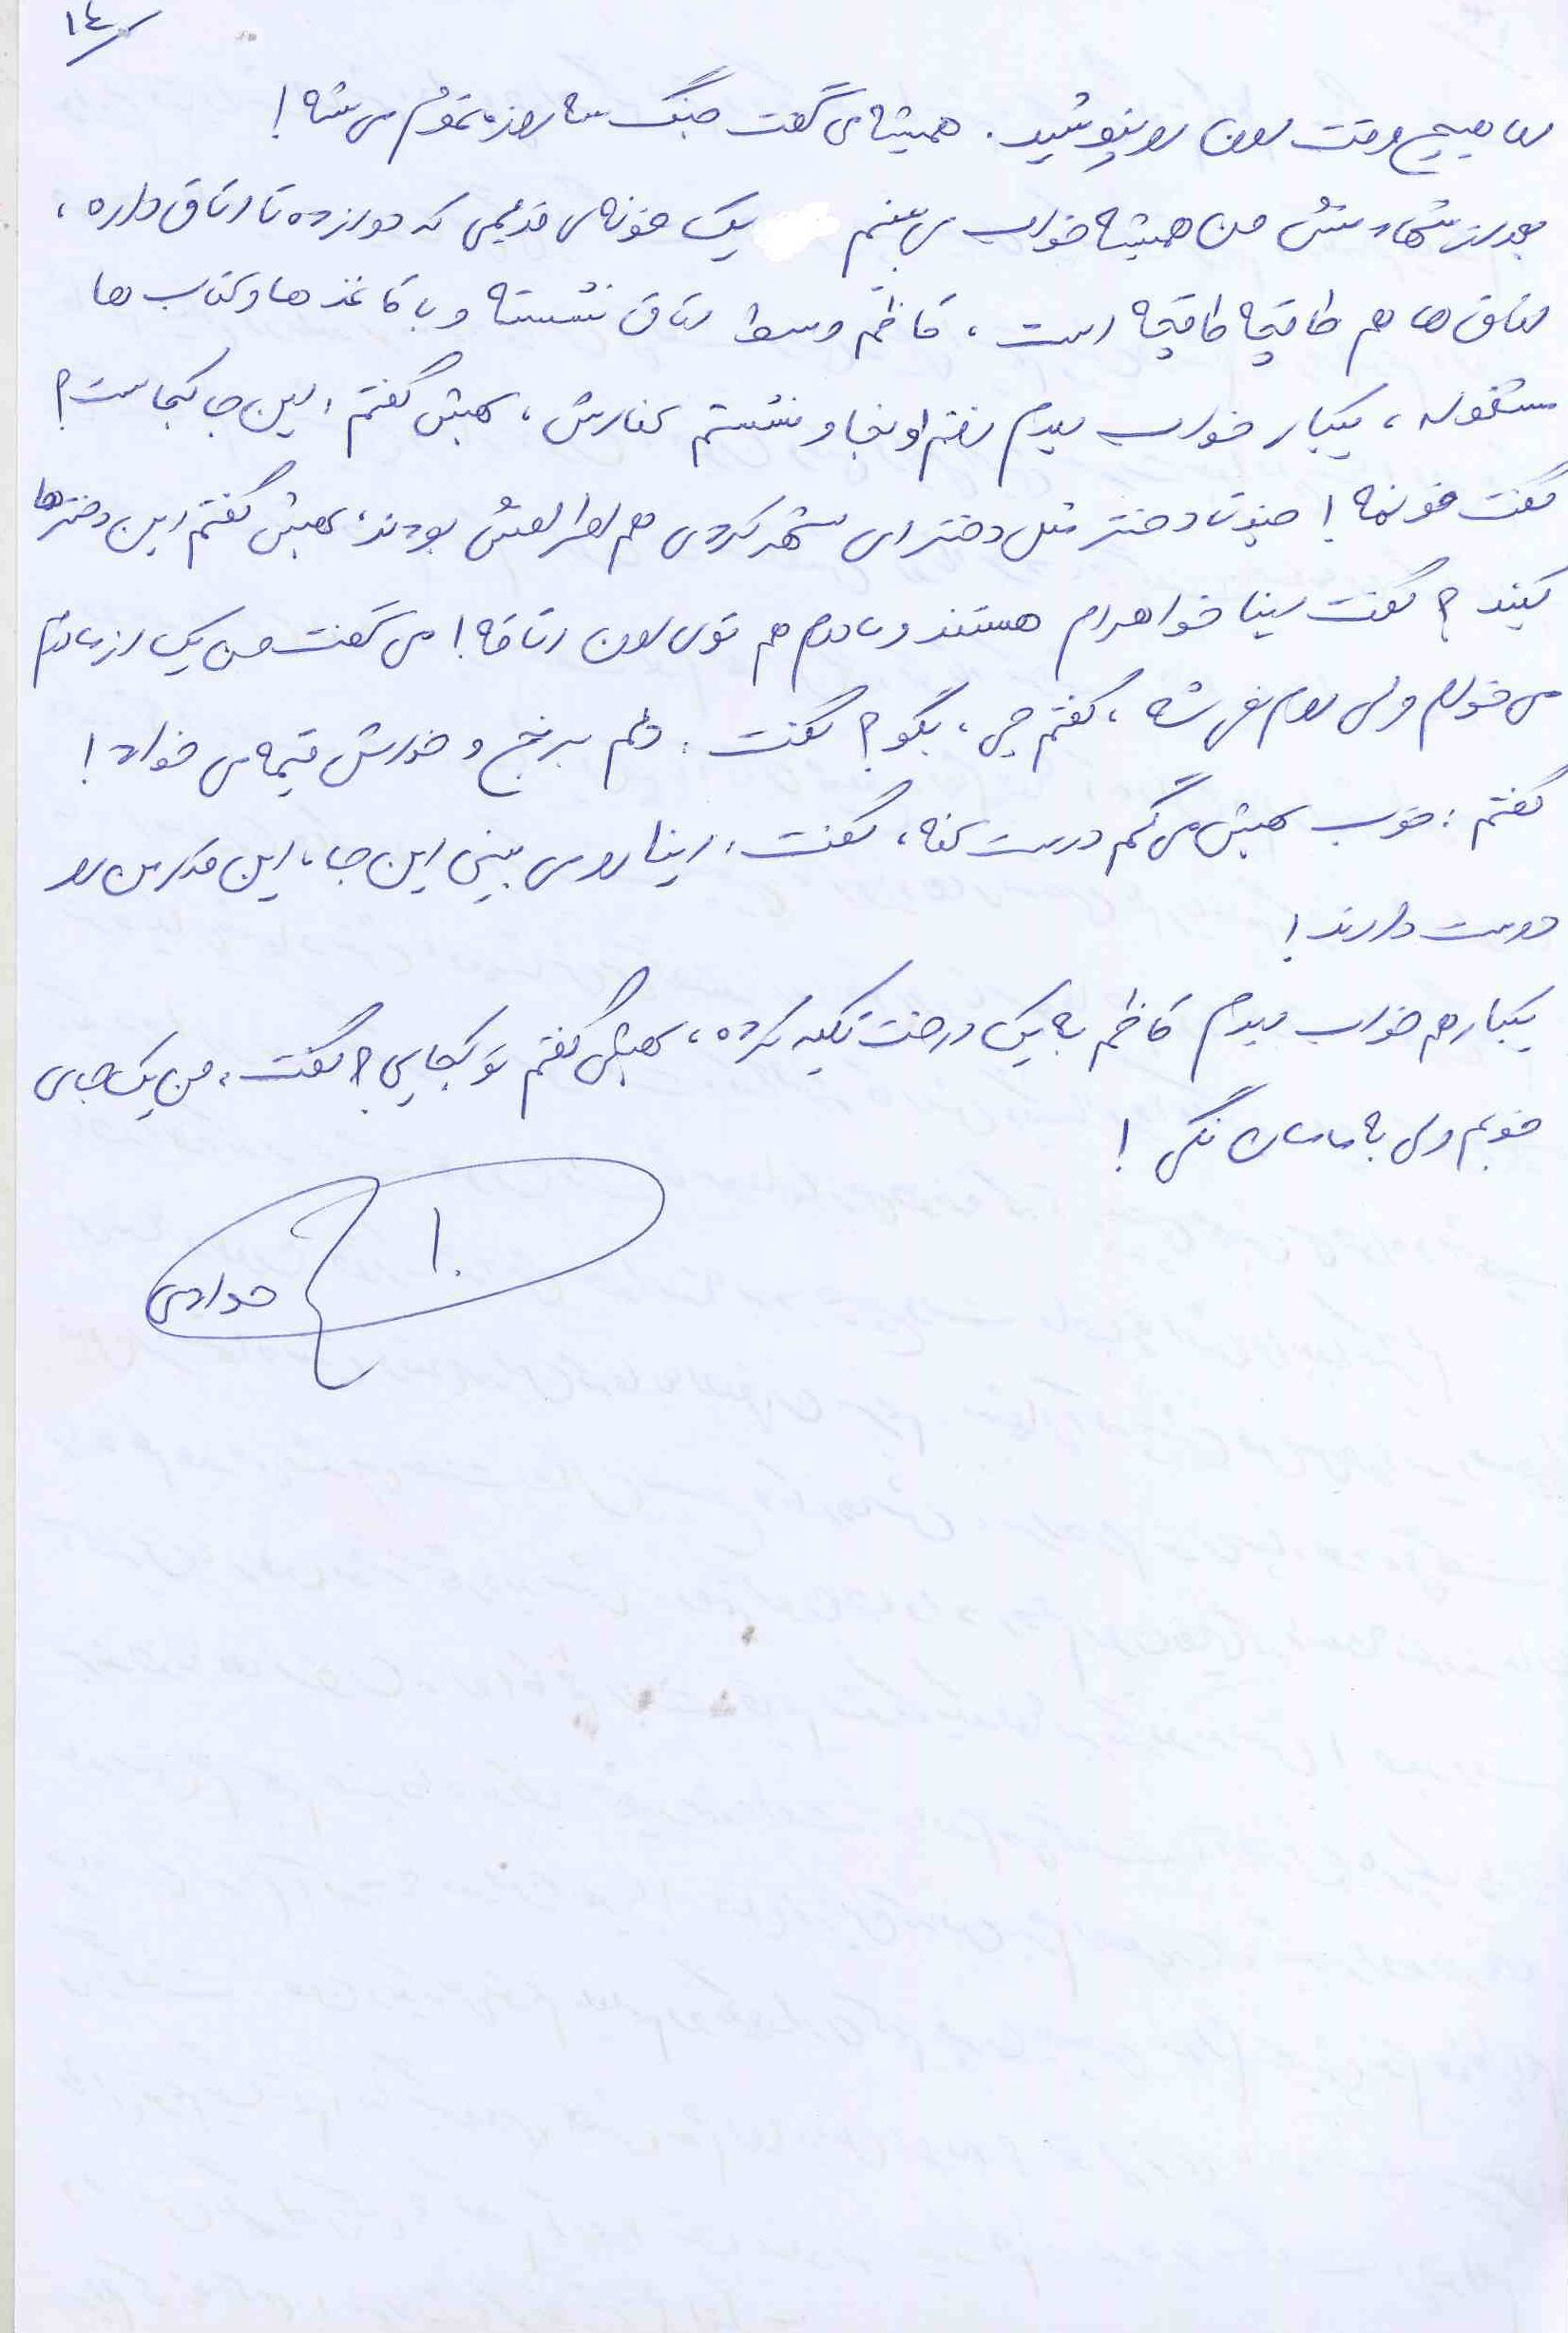 ۱٤
اما هیچ وقت اون رو نپوشید. همیشه می گفت جنگ سه روزه تموم می شه!
بعد از شهادتش من همیشه خواب می بینم یک خونه ی قدیمی که دوازده تا اتاق داره،
اتاق ها هم طاقچه طاقچه است، کاظم وسط اتاق نشسته و با کاغذها و کتاب ها
مشغوله، یکبار خواب دیدم رفتم اونجا و نشستم کنارش، بهش گفتم، این جا کجاست؟
گفت خونمه! چند تا دختر مثل دخترای شهرکردی هم اطرافش بودند، بهش گفتم این دخترها
کیند؟ گفت اینا خواهرام هستند و مادرم هم توی اون اتاقه! می گفت من یک از مادرم
می خوام ولی روم نمی شه، گفتم چی، بگو؟ گفت: دلم برنج و خورش قیمه می خواد!
گفتم: خوب بهش می گم درست کنه، گفت: اینا رو می بینی این جا، این قدر من رو
دوست دارند!
یکبار هم خواب دیدم کاظم به یک درخت تکیه کرده، بهش گفتم تو کجایی؟ گفت، من یک جای
خوبم ولی به مامان نگی!
جوادی